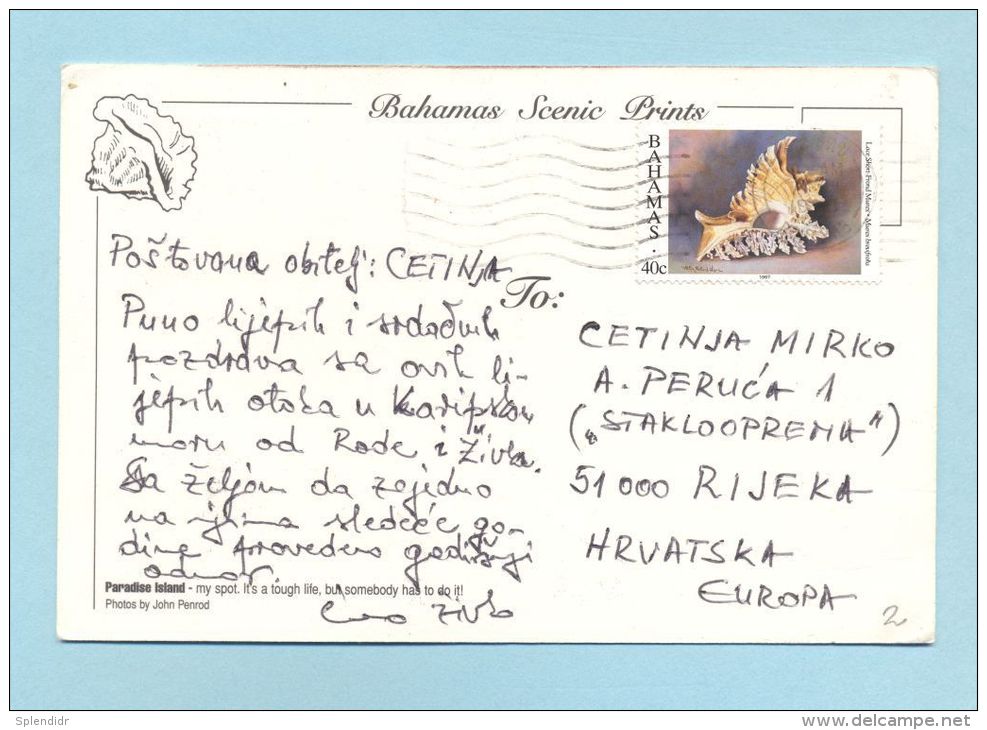 Bahamas Scenic Prints
BAHAMAS
40c
1997
Poštovana obitelj: CETINJA
Puno lijepih i srdačnih
pozdrava sa ovih li-
jepih otoka u Karipskom
moru od Rade i Živka.
Sa željom da zajedno
na njima sledeće go-
dine provedemo godišnji
odmor.
Živko
To:
CETINJA MIRKO
A. PERUĆA 1
("STAKLOOPREMA")
51000 RIJEKA
HRVATSKA
EUROPA
2
Paradise Island - my spot. It's a tough life, but somebody has to do it!
Photos by John Penrod
Splendidr
delcampe.net